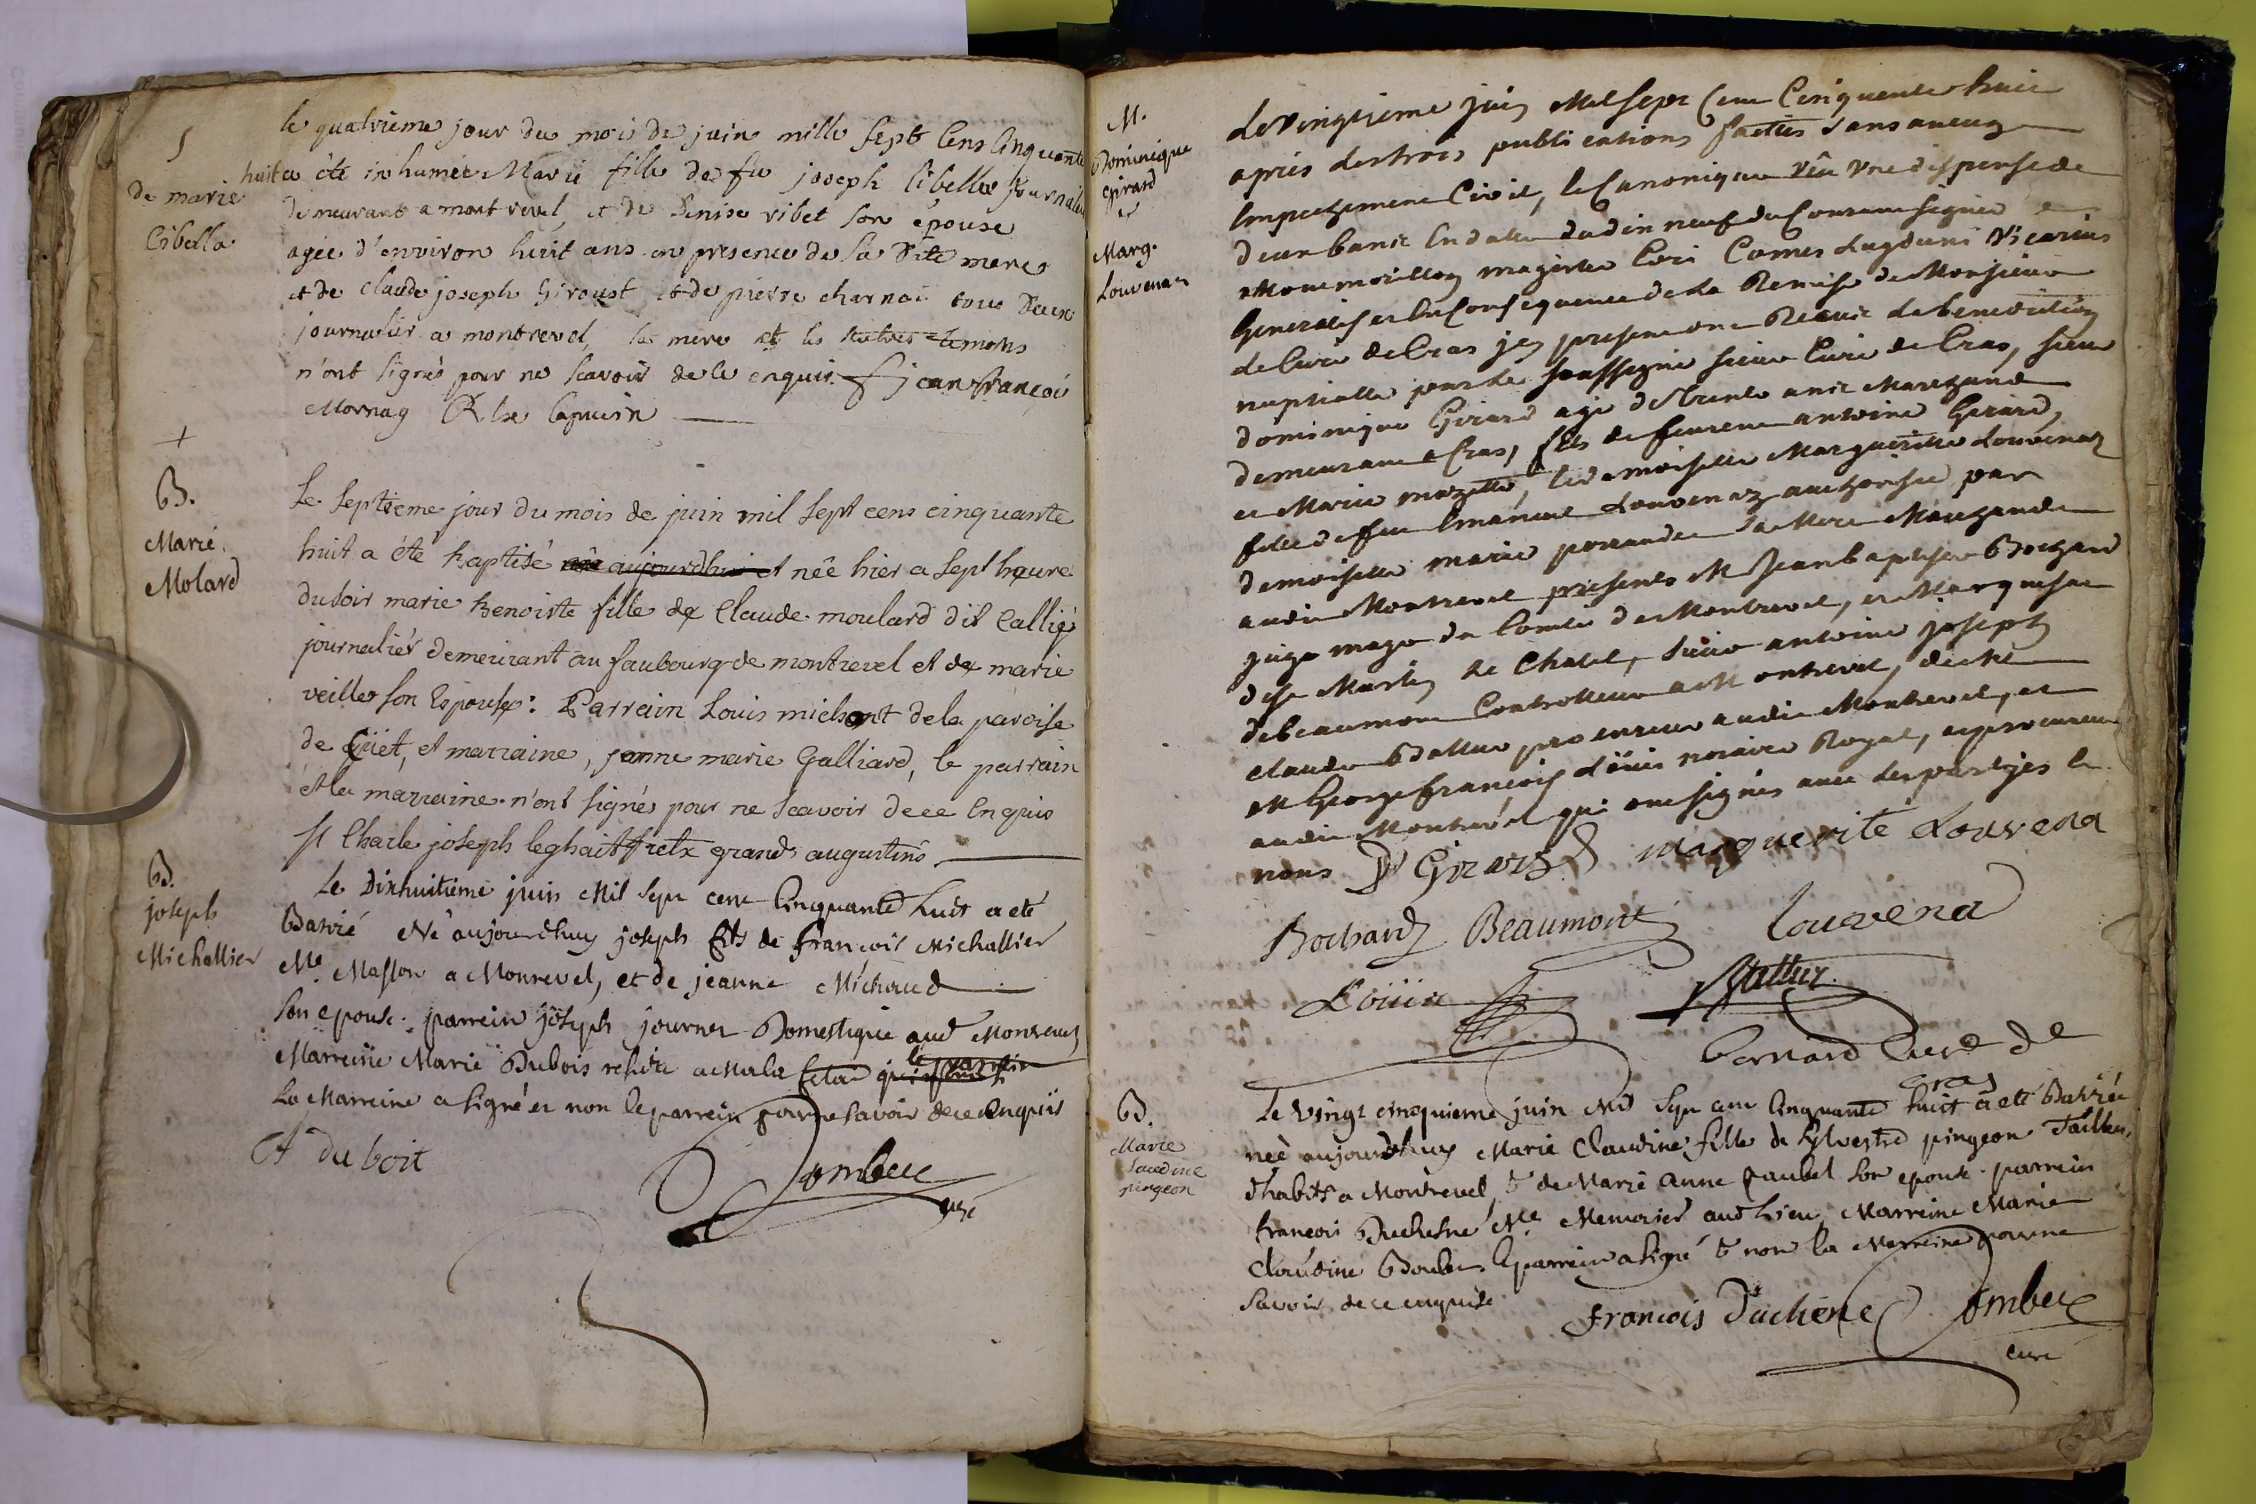 S
de marie
Cibella
le quatrieme jour du mois de juin mille sept cens cinquante
huit a été inhumée Marie fille de fu joseph Cibelle journalier
demeurant a montrevel, et de Denise ribet son épouse
agée d'environ huit ans en presence de sa dite mere
et de Claude joseph Giroust et de pierre charnai tous deux
journalier a montrevel, la mere et les autres temoins
n'ont signés pour ne scavoir de le enquis. f jean françois
Mornay Rlse Capucin
+
B.
Marie
Molard
Le septieme jour du mois de juin mil sept cens cinquante
huit a été baptisé née aujourdhui et née hier a sept heure
du soir marie benoiste fille de Claude moulard dit Callié
journalier demeurant au faubourg de montrevel et de marie
veille son Espouse: Parrain Louis michont de la paroise
de Cüet, et marraine, jeanne marie Galliard, le parrain
et la marraine n'ont signés pour ne scavoir de ce enquis
f Charle joseph leghait grands augustins
B.
joseph
Michallier
Le Dixhuitieme juin Mil sept cent Cinquante huit a eté
Batizé Né aujourdhuy joseph fils de françois Michallier
Me Masson a Monrevel, et de jeanne Michaud
son epouse. parrein joseph journet Domestique aud Monrevel
Marreine Marie Dubois
La Marreine a signé et non le parrein pour ne savoir de ce enquis
du boit
Jombet
curé
M.
Dominique
Girard
et
Marg.
Louvenaz
Le vingtieme juin Mil sept Cent Cinquante huit
après des trois publications faittes sans aucun
Empechement Civil, le Canonique vû une dispense de
deux bans en datte du dix neuf du Courant signée
Montmorillon magister Cori Comes Lugduni Vicarius
Generalis et en Consequence de la Remise de Monsieur
le Curé de Cras jay presente ont Recuit la benediction
nuptialle par le soussigné sieur Curé de Cras, sieur
dominique Girard agé de trente ans Marchand
demeurant a Cras, fils de antoine Girard,
et Marie mazette, et demoiselle Marguerite Louvenaz
fille de feu Emanuel Louvenaz authorisée par
demoiselle marie sa Mere Marchande
audit Montrevel presents M Jean baptiste Bochard
juge mage du Comté de Montrevel, et Marquisat
de st Martin le Chatel, sieur antoine joseph
de beaumont Controlleur a Montrevel,
claude Battur procureur audit Montrevel, et
M George françois Loüin notaire Royal, et procureur
audit Montrevel qui ont signés avec les parties et
nous D Girard marguerite Louvena
Bochard Beaumont Louvena
Loüin Battur
bernard Curé de
Cras
B.
Marie
Claudine
pingeon
Le vingt cinquieme juin Mil sept cent Cinquante huit a eté Batizée
née aujourdhuy Marie Claudine fille de sylvestre pingeon Tailleur
d'habits a Montrevel, & de Marie anne paubel son epouse. parrein
françois Duchesne Me Menuisier aud Lieu Marreine Marie
Claudine le parrein a signé & non la Marreine pour ne
savoir de ce enquise
françois Duchene Jombet
curé